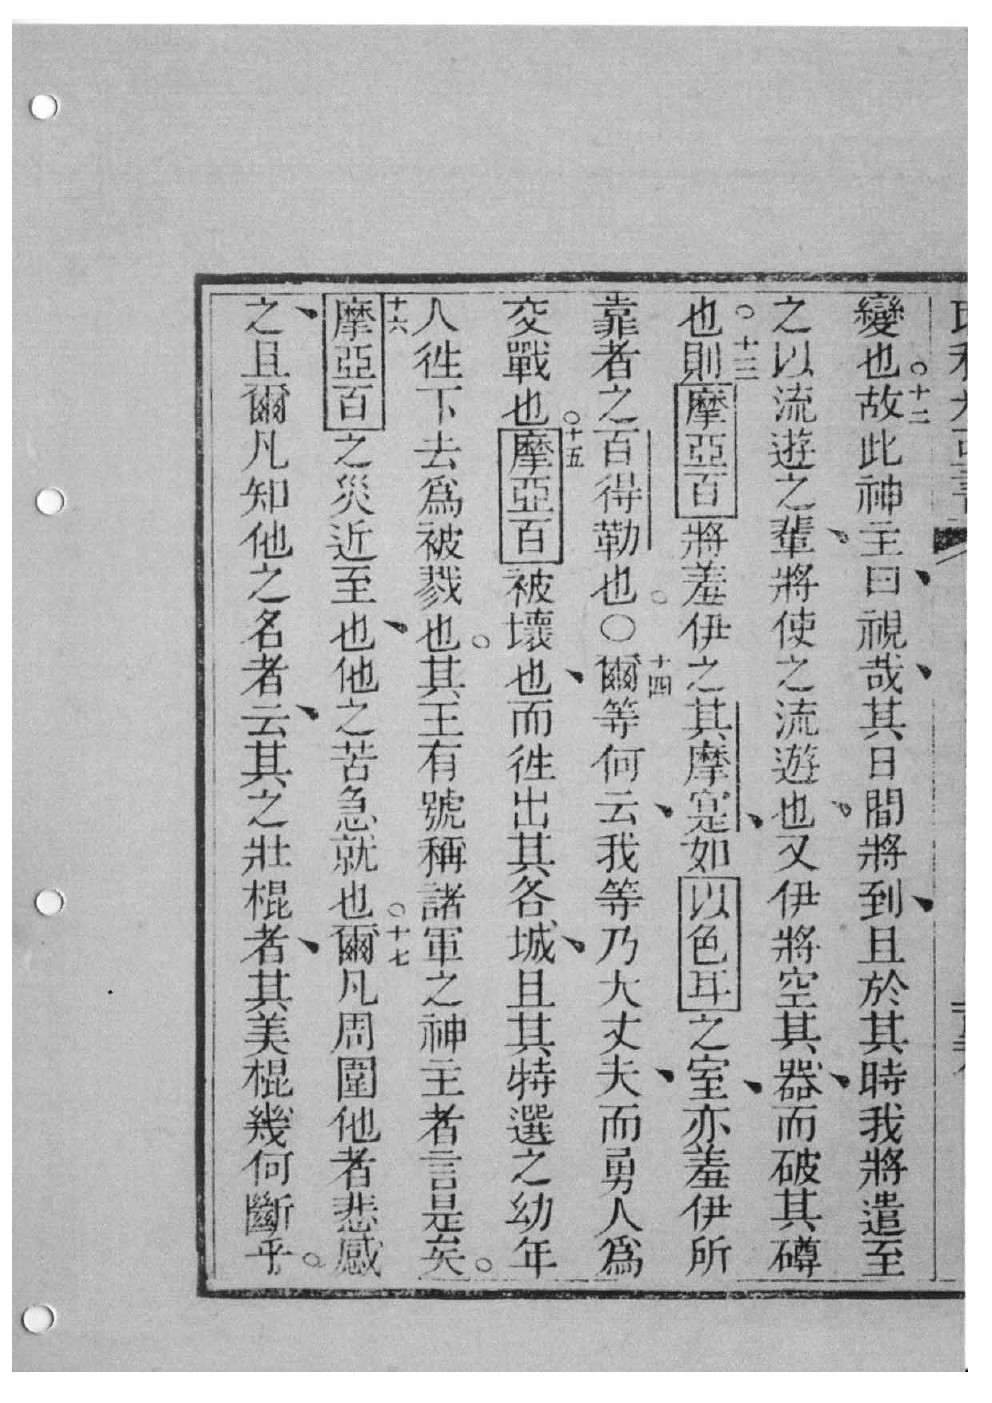 變也。十二故此神主曰、視哉、其日間將到、且於其時我將遣至
之以流遊之輩、將使之流遊也、又伊將空其器、而破其罇
也。十三則摩亞百將羞伊之其摩寔、如以色耳之室、亦羞伊所
靠者之百得勒也。○十四爾等何云、我等乃大丈夫、而勇人為
交戰也。十五摩亞百被壞也、而徃出其各城、且其特選之幼年
人徃下去為被戮也。其王有號稱諸軍之神主者言是矣。
十六摩亞百之災近至也、他之苦急就也。十七爾凡周圍他者悲感
之、且爾凡知他之名者、云其之壯棍者、其美棍幾何斷乎。